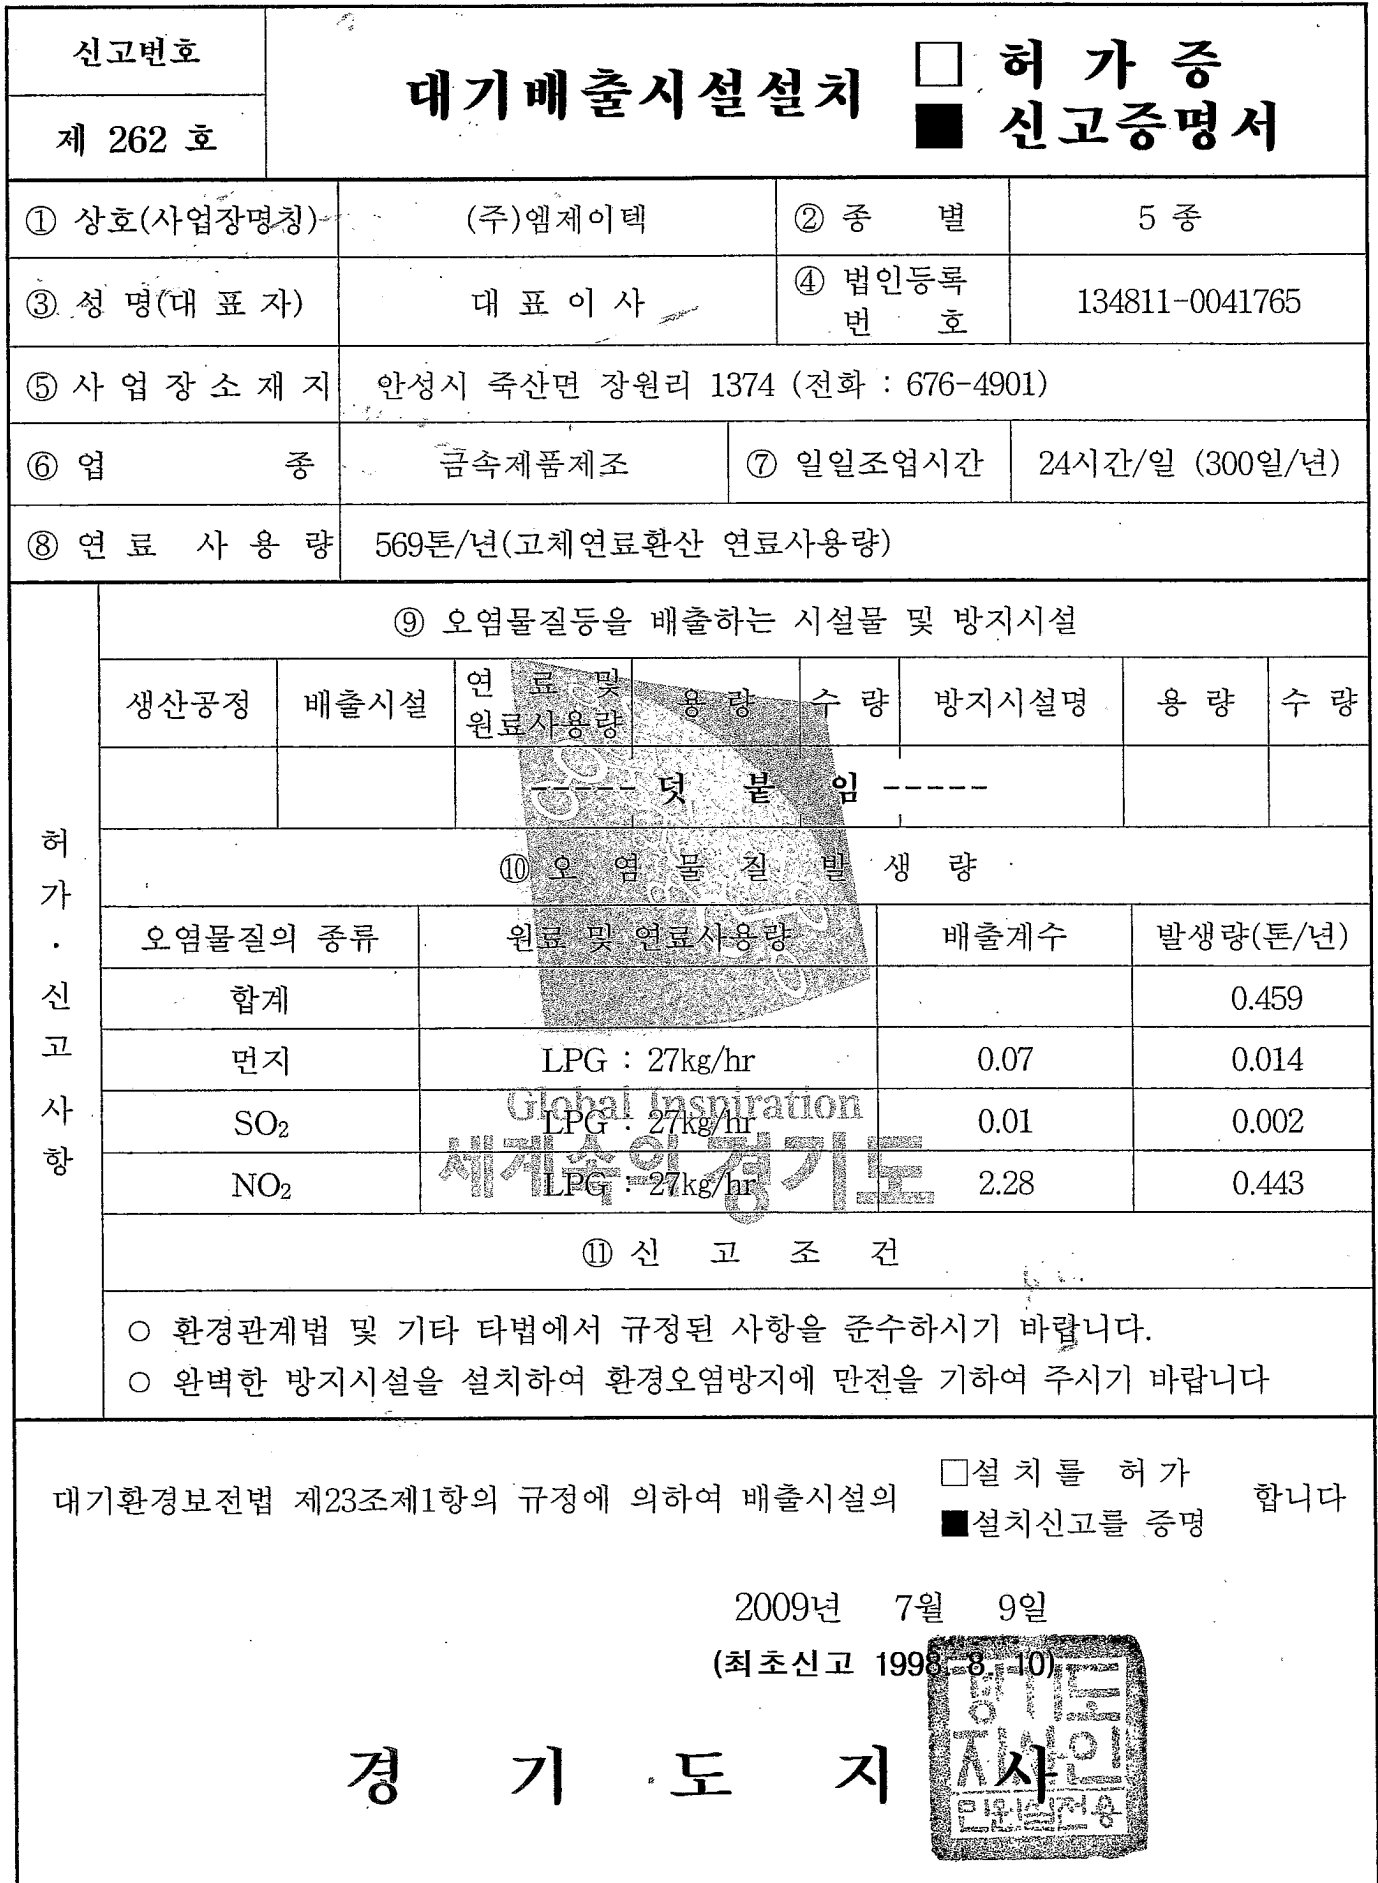 신고번호
제 262 호
대기배출시설설치
□ 허 가 증
■ 신고증명서
① 상호(사업장명칭) (주)엠제이텍 ② 종 별 5 종
③ 성 명(대 표 자) 대 표 이 사 ④ 법인등록 번 호 134811-0041765
⑤ 사 업 장 소 재 지 안성시 죽산면 장원리 1374 (전화 : 676-4901)
⑥ 업 종 금속제품제조 ⑦ 일일조업시간 24시간/일 (300일/년)
⑧ 연 료 사 용 량 569톤/년(고체연료환산 연료사용량)
허 가 · 신 고 사 항
⑨ 오염물질등을 배출하는 시설물 및 방지시설
생산공정 배출시설 연 료 및 원료사용량 용 량 수 량 방지시설명 용 량 수 량
----- 덧 붙 임 -----
⑩ 오 염 물 질 발 생 량
오염물질의 종류 원료 및 연료사용량 배출계수 발생량(톤/년)
합계 0.459
먼지 LPG : 27kg/hr 0.07 0.014
Global Inspiration
SO₂ LPG : 27kg/hr 0.01 0.002
세계속의 경기도
NO₂ LPG : 27kg/hr 2.28 0.443
⑪ 신 고 조 건
○ 환경관계법 및 기타 타법에서 규정된 사항을 준수하시기 바랍니다.
○ 완벽한 방지시설을 설치하여 환경오염방지에 만전을 기하여 주시기 바랍니다
대기환경보전법 제23조제1항의 규정에 의하여 배출시설의 □설 치 를 허 가 합니다
■설치신고를 증명
2009년 7월 9일
(최초신고 1998. 8. 10)
경 기 도 지 사
경기도
지사인
민원실전용